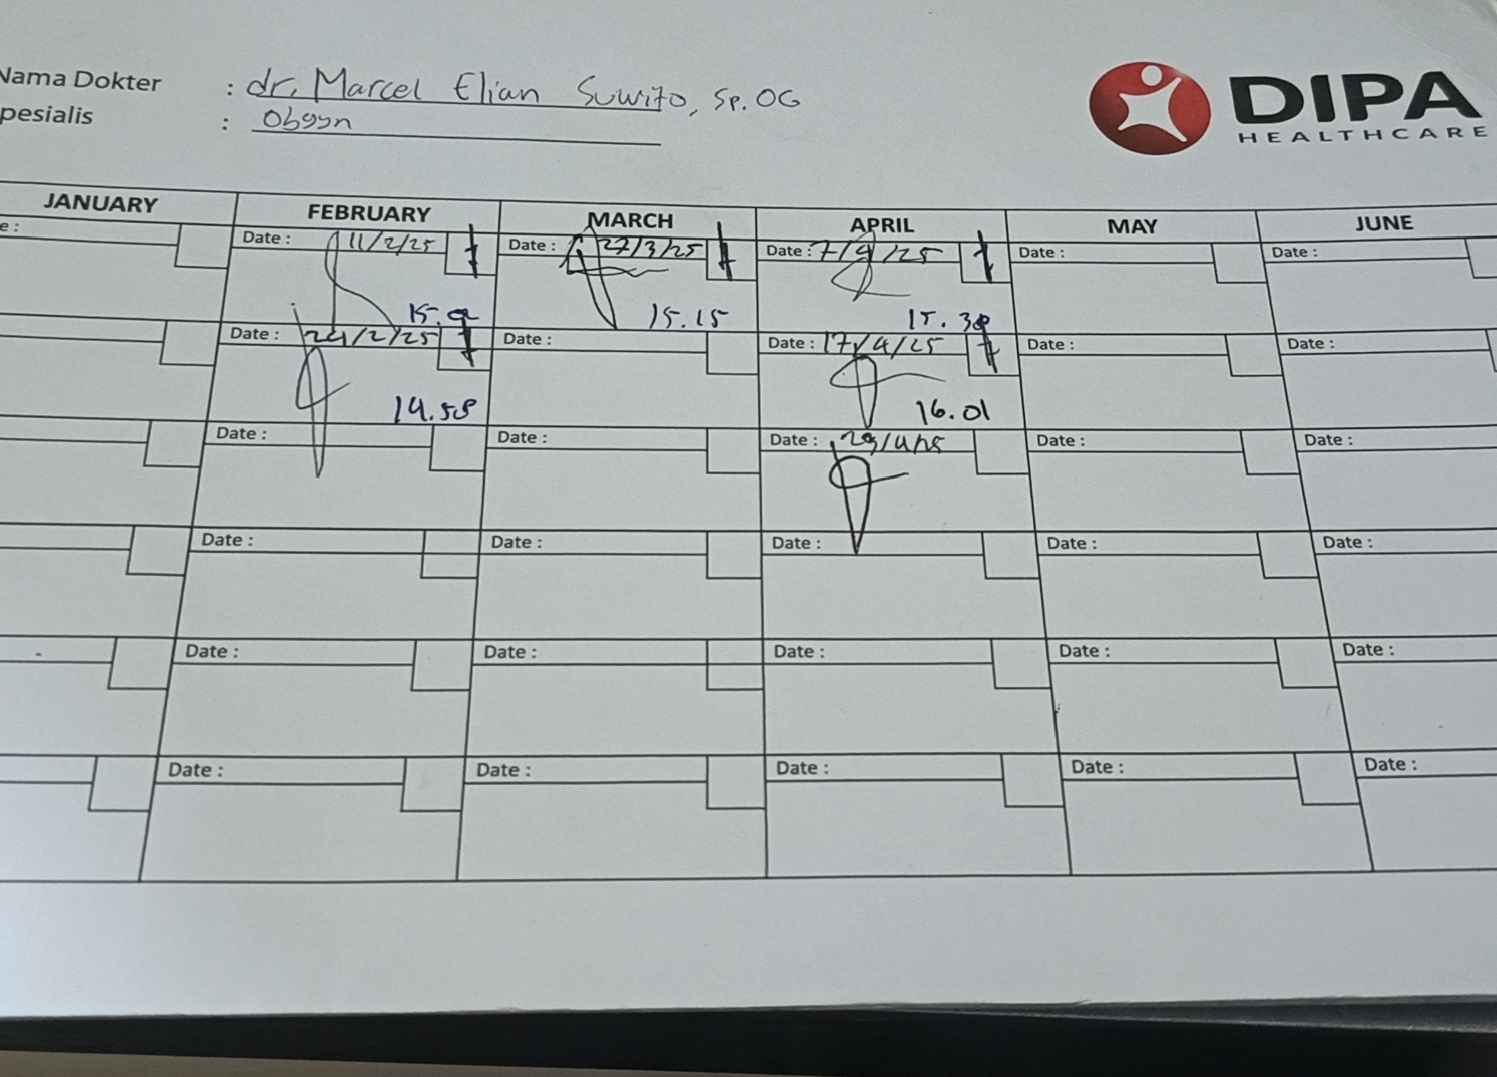 Nama Dokter : dr. Marcel Elian Suwito, Sp.OG
pesialis : Obgyn
DIPA
HEALTHCARE
JANUARY FEBRUARY MARCH APRIL MAY JUNE
e : Date : 11/2/25 Date : 27/3/25 Date : 7/4/25 Date : Date :
15.15 15.38
Date : 24/2/25 Date : Date : 17/4/25 Date : Date :
14.58 16.01
Date : Date : Date : 29/4/25 Date : Date :
Date : Date : Date : Date : Date :
Date : Date : Date : Date : Date :
Date : Date : Date : Date : Date :